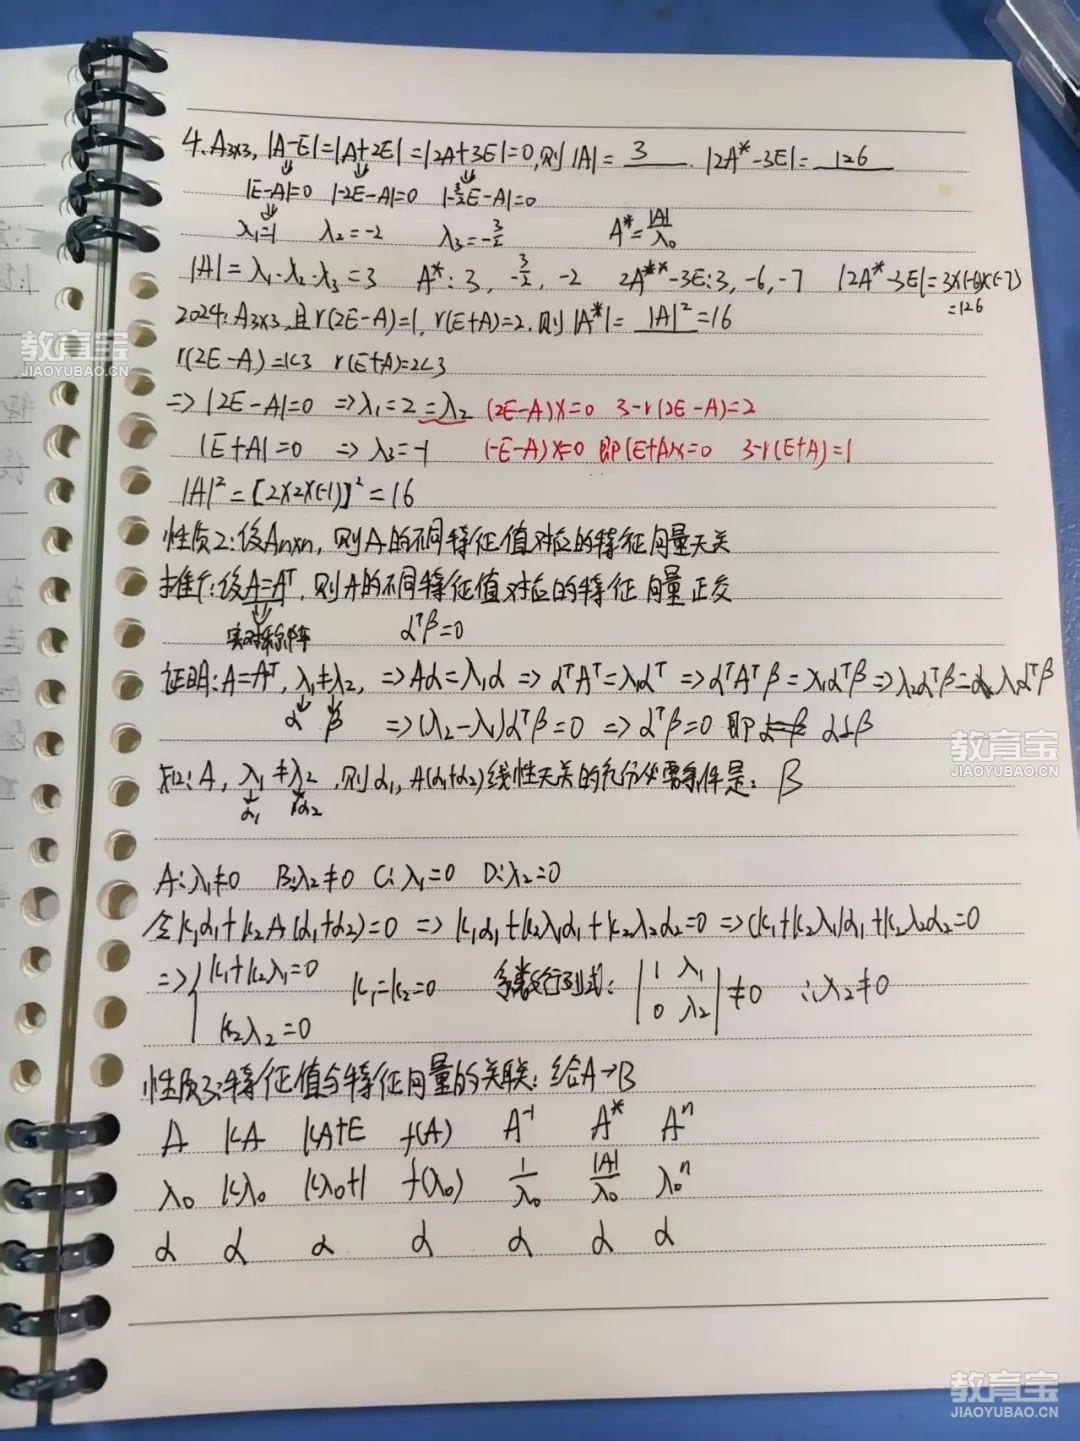 4. A₃ₓ₃, |A-E|=|A+2E|=|2A+3E|=0, 则|A|= 3 . |2A*-3E|= 126
|E-A|=0 |-2E-A|=0 |-3/2E-A|=0
λ₁=1 λ₂=-2 λ₃=-3/2 A*=|A|/λ₀
|A|=λ₁·λ₂·λ₃=3 A*: 3, -3/2, -2 2A**-3E: 3, -6, -7 |2A*-3E|=3×(-6)×(-7)
=126
2024: A₃ₓ₃, 且r(2E-A)=1, r(E+A)=2, 则|A*|= |A|²=16
教育宝
JIAOYUBAO.CN
r(2E-A)=1<3 r(E+A)=2<3
⇒ |2E-A|=0 ⇒λ₁=2=λ₂ (2E-A)X=0 3-r(2E-A)=2
|E+A|=0 ⇒ λ₃=-1 (-E-A)X=0 即(E+A)X=0 3-r(E+A)=1
|A|²=[2×2×(-1)]²=16
性质2: 设Aₙₓₙ, 则A的不同特征值对应的特征向量无关
推广: 设A=Aᵀ, 则A的不同特征值对应的特征向量正交
实对称阵 αᵀβ=0
证明: A=Aᵀ, λ₁≠λ₂, ⇒Aα=λ₁α ⇒ αᵀAᵀ=λ₁αᵀ ⇒αᵀAᵀβ=λ₁αᵀβ⇒λ₂αᵀβ=λ₁αᵀβ
α β ⇒(λ₂-λ₁)αᵀβ=0 ⇒αᵀβ=0 即 α⊥β
教育宝
JIAOYUBAO.CN
知2: A, λ₁≠λ₂, 则α₁, A(α₁+α₂)线性无关的充分必要条件是: B
α₁ α₂
A: λ₁≠0 B: λ₂≠0 C: λ₁=0 D: λ₂=0
令k₁α₁+k₂A(α₁+α₂)=0 ⇒ k₁α₁+k₂λ₁α₁+k₂λ₂α₂=0 ⇒(k₁+k₂λ₁)α₁+k₂λ₂α₂=0
⇒{ k₁+k₂λ₁=0 k₁=k₂=0 系数行列式: |1 λ₁
k₂λ₂=0 0 λ₂|≠0 ∴λ₂≠0
性质3: 特征值与特征向量的关联: 给A→B
A kA kA+E f(A) A⁻¹ A* Aⁿ
λ₀ kλ₀ kλ₀+1 f(λ₀) 1/λ₀ |A|/λ₀ λ₀ⁿ
α α α α α α α
教育宝
JIAOYUBAO.CN